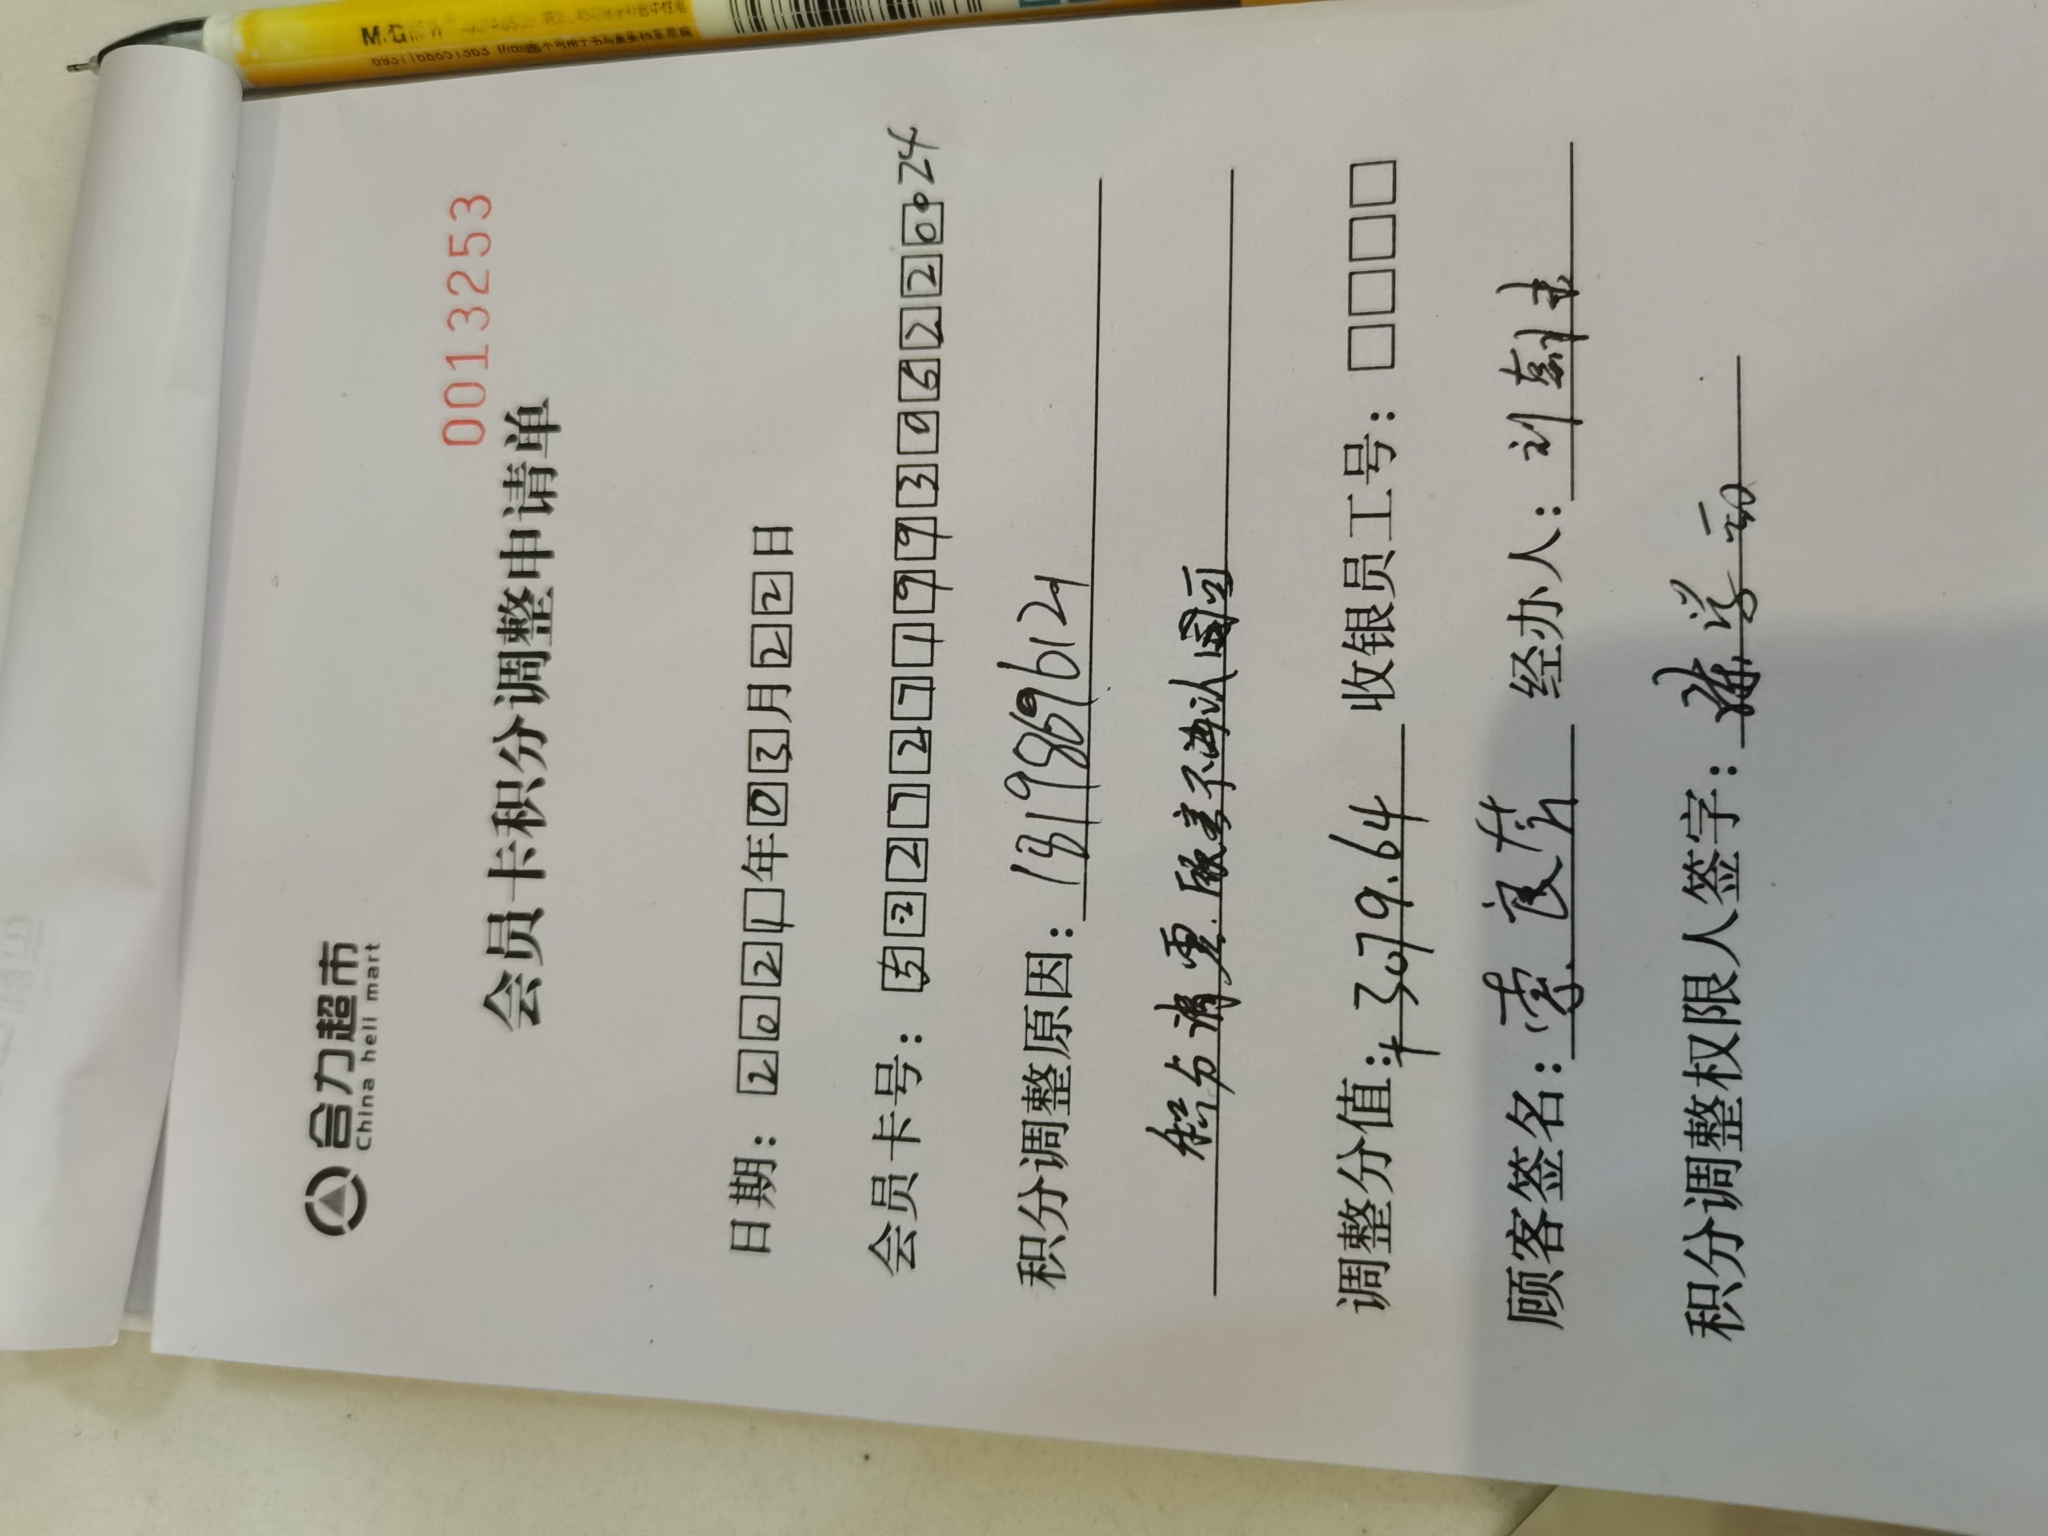 M&G
6937168651363
合力超市
China heli mart
0013253
会员卡积分调整申请单
日期：2021年03月22日
会员卡号：522727199305220024
积分调整原因：1319869612
积分清零.顾客不承认
调整分值：+3079.64 收银员工号：□□□□
顾客签名：索良 经办人：刘
积分调整权限人签字：